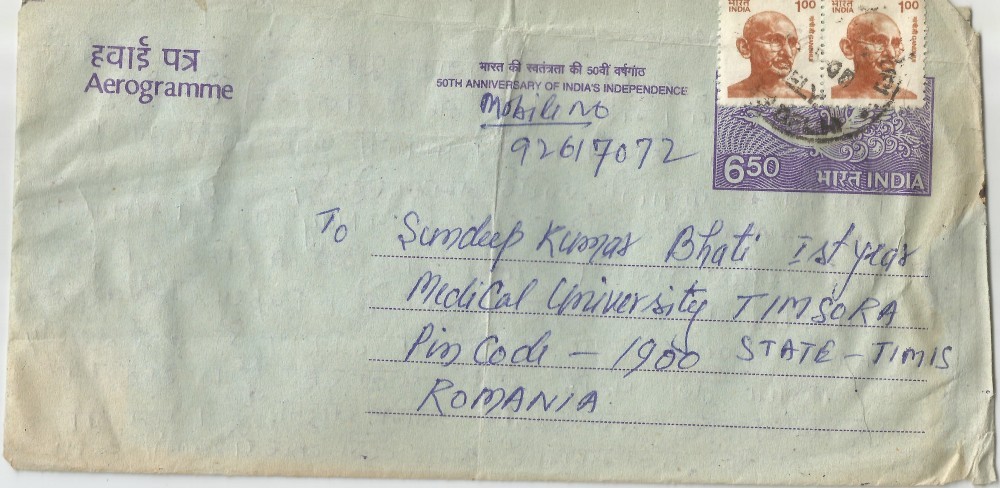 हवाई पत्र
Aerogramme
भारत की स्वतंत्रता की 50वीं वर्षगांठ
50TH ANNIVERSARY OF INDIA'S INDEPENDENCE
भारत INDIA 1.00
भारत INDIA 1.00
6.50 भारत INDIA
Mobile No
92617072
To Sundeep Kumar Bhati Ist year
Medical University TIMSORA
Pin Code - 1900 STATE - TIMIS
ROMANIA